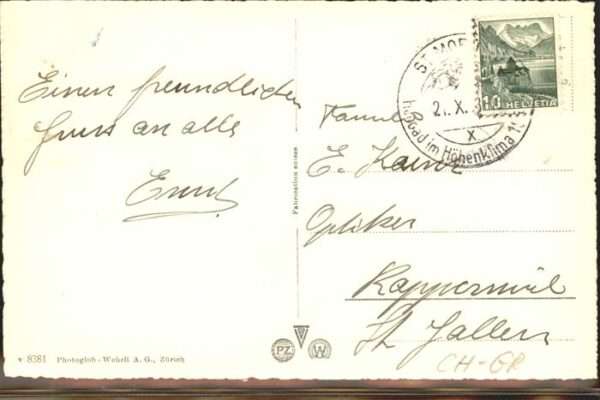 Einen freundlichen
Gruss an alle
Ernst
Fabrication suisse
ST. MOR
21. X. 3
Heilbad im Höhenklima
X
10 HELVETIA
Familie
E. Kaiser
Optiker
Rapperswil
St. Gallen
CH-GR
8381 Photoglob-Wehrli A. G., Zürich
PZ
W